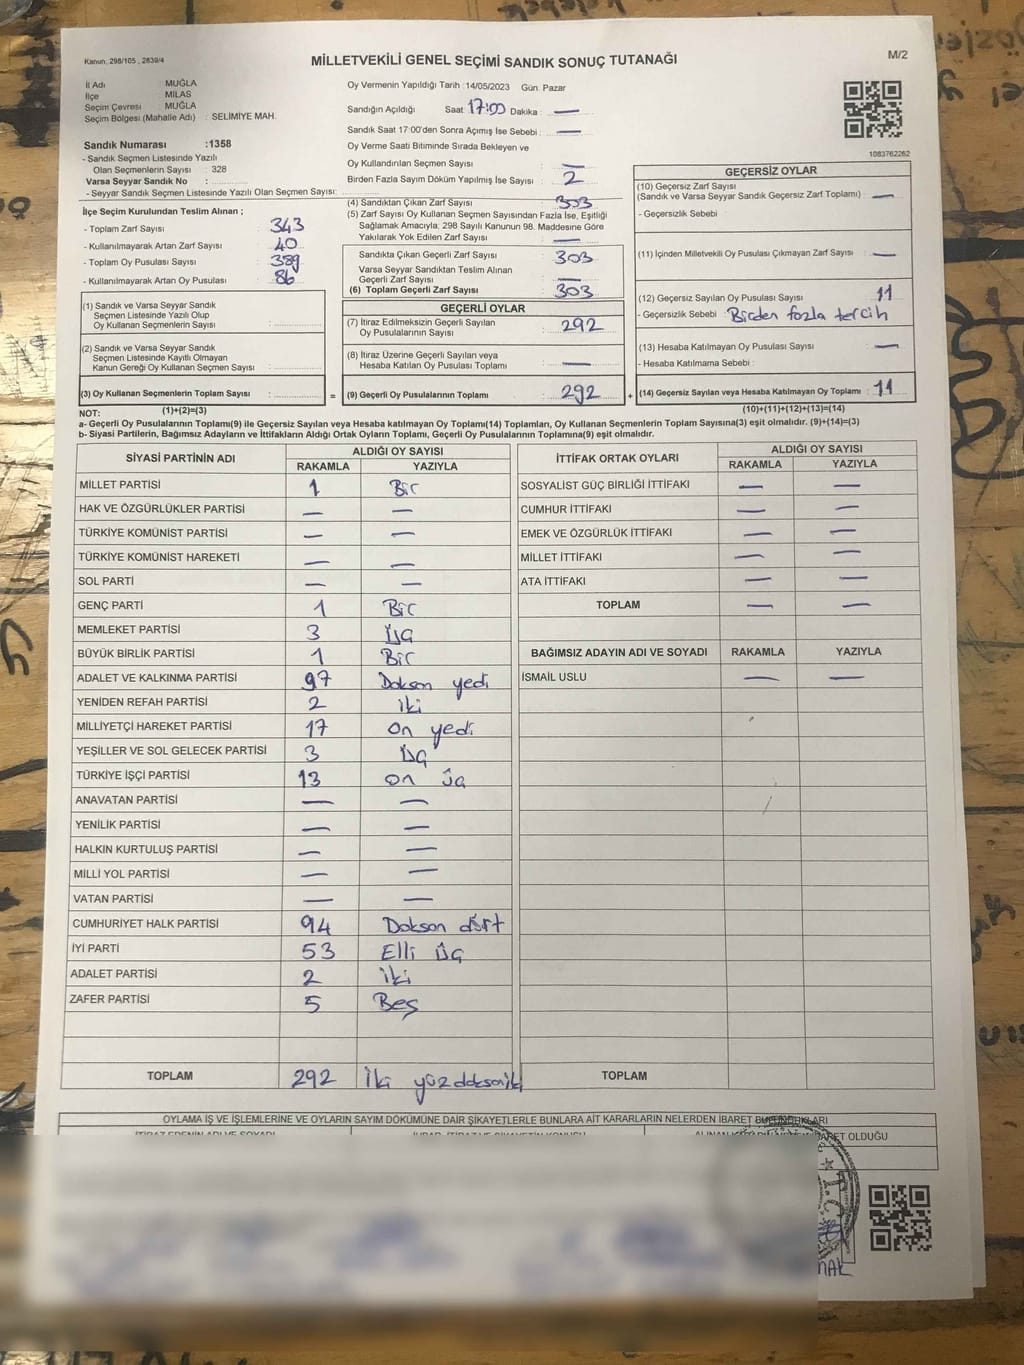 Kanun, 298/105 , 2839/4
MİLLETVEKİLİ GENEL SEÇİMİ SANDIK SONUÇ TUTANAĞI
M/2
İl Adı : MUĞLA
İlçe : MİLAS
Seçim Çevresi : MUĞLA
Seçim Bölgesi (Mahalle Adı) : SELİMİYE MAH.
Sandık Numarası :1358
- Sandık Seçmen Listesinde Yazılı
Olan Seçmenlerin Sayısı : 328
Varsa Seyyar Sandık No :
- Seyyar Sandık Seçmen Listesinde Yazılı Olan Seçmen Sayısı:
Oy Vermenin Yapıldığı Tarih :14/05/2023 Gün Pazar
Sandığın Açıldığı Saat 17:00 Dakika : —
Sandık Saat 17:00'den Sonra Açımış İse Sebebi : —
Oy Verme Saati Bitiminde Sırada Bekleyen ve
Oy Kullandırılan Seçmen Sayısı : —
Birden Fazla Sayım Döküm Yapılmış İse Sayısı : 2
1083762262
İlçe Seçim Kurulundan Teslim Alınan ;
- Toplam Zarf Sayısı : 343
- Kullanılmayarak Artan Zarf Sayısı : 40
- Toplam Oy Pusulası Sayısı : 389
- Kullanılmayarak Artan Oy Pusulası : 86
(1) Sandık ve Varsa Seyyar Sandık
Seçmen Listesinde Yazılı Olup
Oy Kullanan Seçmenlerin Sayısı :
(2) Sandık ve Varsa Seyyar Sandık
Seçmen Listesinde Kayıtlı Olmayan
Kanun Gereği Oy Kullanan Seçmen Sayısı :
(3) Oy Kullanan Seçmenlerin Toplam Sayısı : =
(1)+(2)=(3)
(4) Sandıktan Çıkan Zarf Sayısı : 303
(5) Zarf Sayısı Oy Kullanan Seçmen Sayısından Fazla İse, Eşitliği
Sağlamak Amacıyla, 298 Sayılı Kanunun 98. Maddesine Göre
Yakılarak Yok Edilen Zarf Sayısı : —
Sandıkta Çıkan Geçerli Zarf Sayısı : 303
Varsa Seyyar Sandıktan Teslim Alınan
Geçerli Zarf Sayısı : —
(6) Toplam Geçerli Zarf Sayısı : 303
GEÇERLİ OYLAR
(7) İtiraz Edilmeksizin Geçerli Sayılan
Oy Pusulalarının Sayısı : 292
(8) İtiraz Üzerine Geçerli Sayılan veya
Hesaba Katılan Oy Pusulası Toplamı : —
(9) Geçerli Oy Pusulalarının Toplamı : 292 +
GEÇERSİZ OYLAR
(10) Geçersiz Zarf Sayısı
(Sandık ve Varsa Seyyar Sandık Geçersiz Zarf Toplamı) : —
- Geçersizlik Sebebi :
(11) İçinden Milletvekili Oy Pusulası Çıkmayan Zarf Sayısı : —
(12) Geçersiz Sayılan Oy Pusulası Sayısı : 11
- Geçersizlik Sebebi : Birden fazla tercih
(13) Hesaba Katılmayan Oy Pusulası Sayısı : —
- Hesaba Katılmama Sebebi :
(14) Geçersiz Sayılan veya Hesaba Katılmayan Oy Toplamı : 11
(10)+(11)+(12)+(13)=(14)
NOT:
a- Geçerli Oy Pusulalarının Toplamı(9) ile Geçersiz Sayılan veya Hesaba katılmayan Oy Toplamı(14) Toplamları, Oy Kullanan Seçmenlerin Toplam Sayısına(3) eşit olmalıdır. (9)+(14)=(3)
b- Siyasi Partilerin, Bağımsız Adayların ve İttifakların Aldığı Ortak Oyların Toplamı, Geçerli Oy Pusulalarının Toplamına(9) eşit olmalıdır.
SİYASİ PARTİNİN ADI ALDIĞI OY SAYISI
RAKAMLA YAZIYLA
MİLLET PARTİSİ 1 Bir
HAK VE ÖZGÜRLÜKLER PARTİSİ — —
TÜRKİYE KOMÜNİST PARTİSİ — —
TÜRKİYE KOMÜNİST HAREKETİ — —
SOL PARTİ — —
GENÇ PARTİ 1 Bir
MEMLEKET PARTİSİ 3 Üç
BÜYÜK BİRLİK PARTİSİ 1 Bir
ADALET VE KALKINMA PARTİSİ 97 Doksan yedi
YENİDEN REFAH PARTİSİ 2 iki
MİLLİYETÇİ HAREKET PARTİSİ 17 On yedi
YEŞİLLER VE SOL GELECEK PARTİSİ 3 Üç
TÜRKİYE İŞÇİ PARTİSİ 13 on üç
ANAVATAN PARTİSİ — —
YENİLİK PARTİSİ — —
HALKIN KURTULUŞ PARTİSİ — —
MİLLİ YOL PARTİSİ — —
VATAN PARTİSİ — —
CUMHURİYET HALK PARTİSİ 94 Doksan dört
İYİ PARTİ 53 Elli üç
ADALET PARTİSİ 2 iki
ZAFER PARTİSİ 5 Beş
TOPLAM 292 İki yüz doksan iki
İTTİFAK ORTAK OYLARI ALDIĞI OY SAYISI
RAKAMLA YAZIYLA
SOSYALİST GÜÇ BİRLİĞİ İTTİFAKI — —
CUMHUR İTTİFAKI — —
EMEK VE ÖZGÜRLÜK İTTİFAKI — —
MİLLET İTTİFAKI — —
ATA İTTİFAKI — —
TOPLAM — —
BAĞIMSIZ ADAYIN ADI VE SOYADI RAKAMLA YAZIYLA
İSMAİL USLU — —
TOPLAM
OYLAMA İŞ VE İŞLEMLERİNE VE OYLARIN SAYIM DÖKÜMÜNE DAİR ŞİKAYETLERLE BUNLARA AİT KARARLARIN NELERDEN İBARET BULUNDUKLARI
OLDUĞU
T.C.